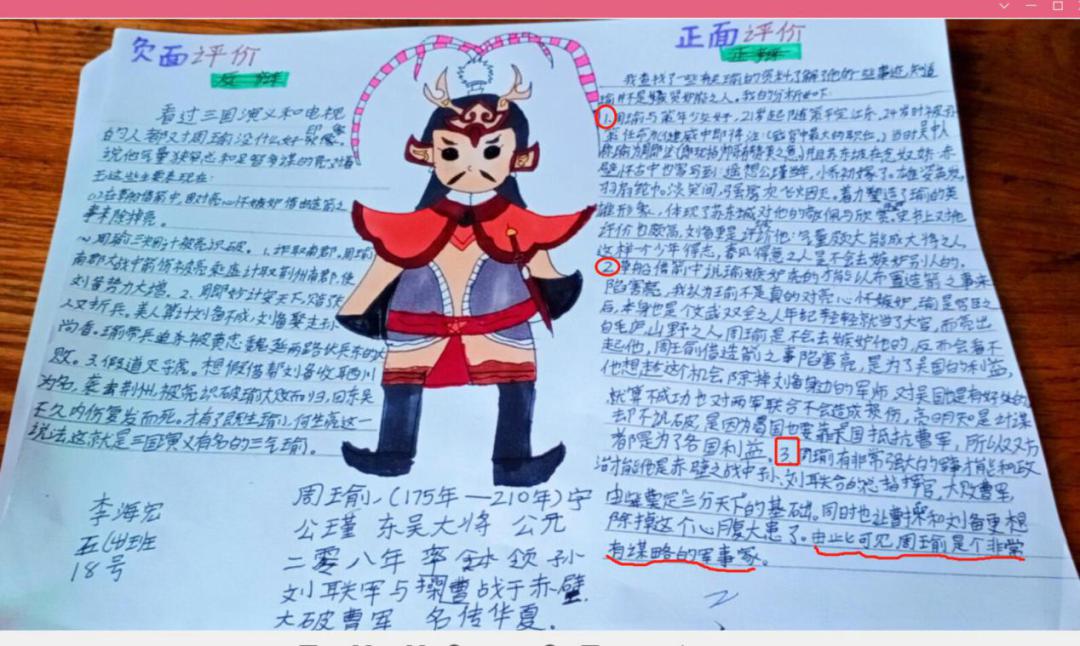 负面评价
反辩
看过三国演义和电视
的人都对周瑜没什么好印象
说他气量狭窄
无这些主要表现在:
事来除掉亮。
周瑜三次用计被亮识破。1.诈取南郡,周瑜
南郡大战中箭伤被亮乘虚计取荆州南郡,使
刘备势力大增。2.周郎妙计安天下,赔了夫
人又折兵。美人算计刘备不成,刘备娶走孙
尚香。瑜带兵追杀被黄忠魏延两路伏兵杀的大
败。3.假道灭虢。想假借帮刘备收西川
为名,
王久内伤复发而死。才有了既生瑜,何生亮这一
说法这就是三国演义有名的三气瑜。
李海宏
五(4)班
18号
周瑜,(175年—210年)字
公瑾 东吴大将 公元
二零八年 率 领 孙
刘联军与 曹战于赤壁.
大破曹军 名传华夏.
正面评价
正辩
我查找了一些有瑜的资料,了解了他的一些事迹,知道
瑜并不是 之人。我的分析如下:
1.周瑜与策年少交好,21岁起随策平定江东,24岁时被孙
策任命
称瑜为周郎
壁怀古中也写到:遥想公瑾当年,小乔初嫁了。雄姿英发,
羽扇纶巾。谈笑间,
雄形象,体现了苏东坡对他的敬佩与欣赏。史书上对他
评价也颇高,刘备更是评价他:气量颇大能成大将之人,
这样一个少年得志,春风得意之人是不会去嫉妒别人的。
2.草船借箭中说瑜嫉妒亮的才能以布置造箭之事来
陷害亮,我认为瑜不是真的对亮心怀嫉妒,瑜是
后,本身也是个文武双全之人年纪轻轻就当了大官,而亮出
自茅庐山野之人,周瑜是不会去嫉妒他的,反而会看不
起他,周瑜借造箭之事陷害亮,是为了吴国的利益,
他想趁这个机会,除掉刘备身边的军师,对吴国是有好处的。
就算不成功也对两军联合不会造成损伤,亮明知是计谋
却不识破,是因为蜀国也要靠吴国抵抗曹军,所以双方
都是为了各国利益。3.周瑜有非常强大的军事才能和政
治才能他是赤壁之战中孙、刘联合的总指挥官,大败曹军,
由此奠定三分天下的基础。同时也让曹操和刘备更想
除掉这个心腹大患了。由此可见周瑜是个非常
有谋略的军事家。